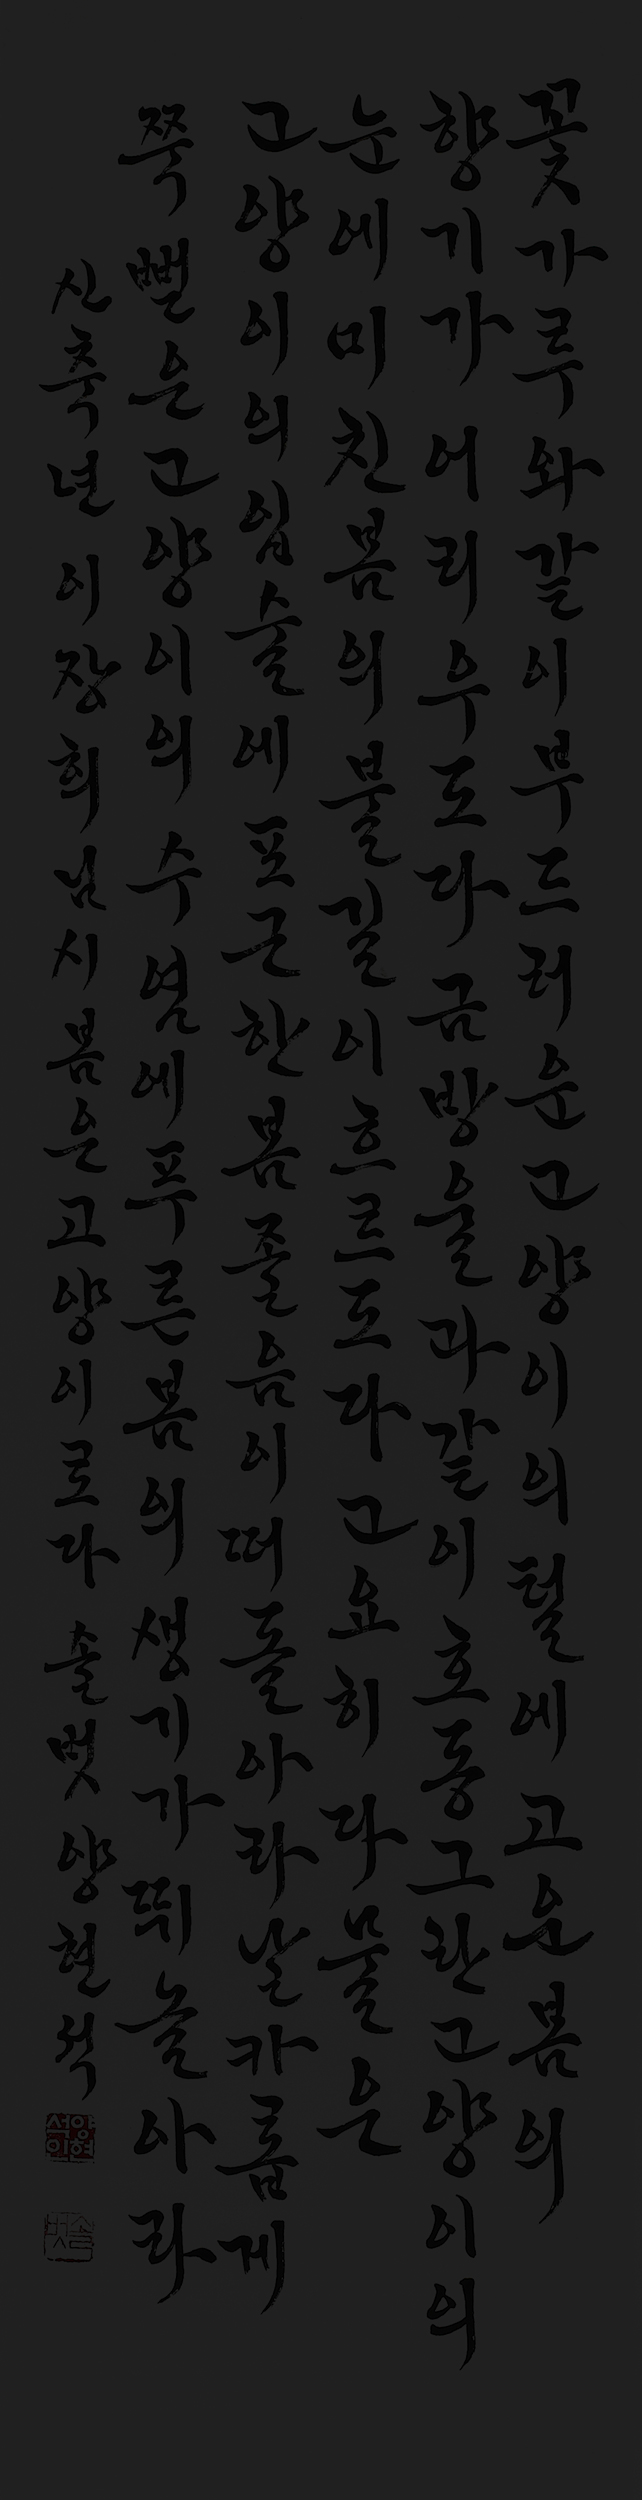 꽃가루와 같이 부드러운 고양이의 털에 고운 봄의
향기가 어리우도다 금방울과 같이 호동그란 고양이의
눈에 미친 봄의 불길이 흐르도다 고요히 다물은
고양이의 입술에 포근한 봄졸음이 떠돌아라 날카롭게
쭉 뻗은 고양이의 수염에 푸른 봄의 생기가 뛰놀아라
신축년 이장희님 시 봄은 고양이로다